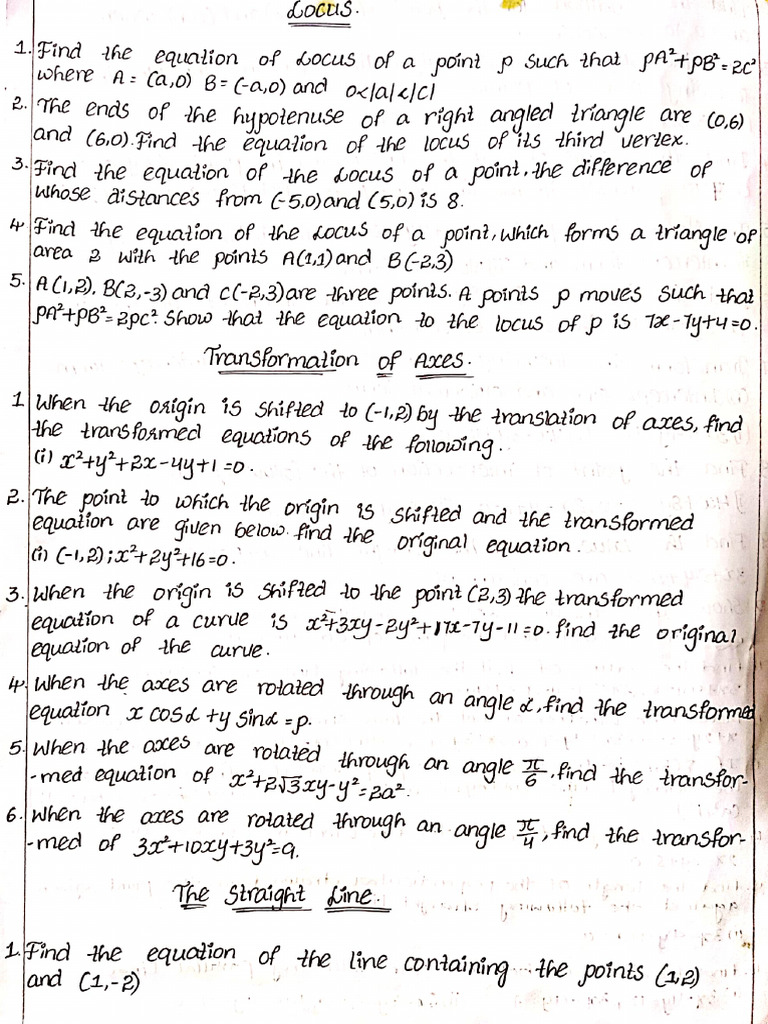 Locus.
1. Find the equation of Locus of a point P such that PA²+PB²=2c²
where A = (a,0) B = (-a,0) and 0<|a|<|c|
2. The ends of the hypotenuse of a right angled triangle are (0,6)
and (6,0). Find the equation of the locus of its third vertex.
3. Find the equation of the Locus of a point, the difference of
whose distances from (-5,0) and (5,0) is 8.
4 Find the equation of the Locus of a point, which forms a triangle of
area 2 with the points A(1,1) and B(-2,3)
5. A(1,2), B(2,-3) and C(-2,3) are three points. A points P moves such that
PA²+PB²=2PC². Show that the equation to the locus of P is 7x-7y+4=0.
Transformation of Axes.
1 When the origin is shifted to (-1,2) by the translation of axes, find
the transformed equations of the following.
(i) x²+y²+2x-4y+1=0.
2. The point to which the origin is shifted and the transformed
equation are given below. find the original equation.
(i) (-1,2); x²+2y²+16=0.
3. When the origin is shifted to the point (2,3) the transformed
equation of a curve is x²+3xy-2y²+17x-7y-11=0. find the original
equation of the curve.
4. When the axes are rotated through an angle α, find the transformed
equation x cosα + y sinα = p.
5. When the axes are rotated through an angle π/6, find the transfor-
-med equation of x²+2√3xy-y²=2a².
6. When the axes are rotated through an angle π/4, find the transfor-
-med of 3x²+10xy+3y²=9.
The Straight Line.
1. Find the equation of the line containing the points (1,2)
and (1,-2)